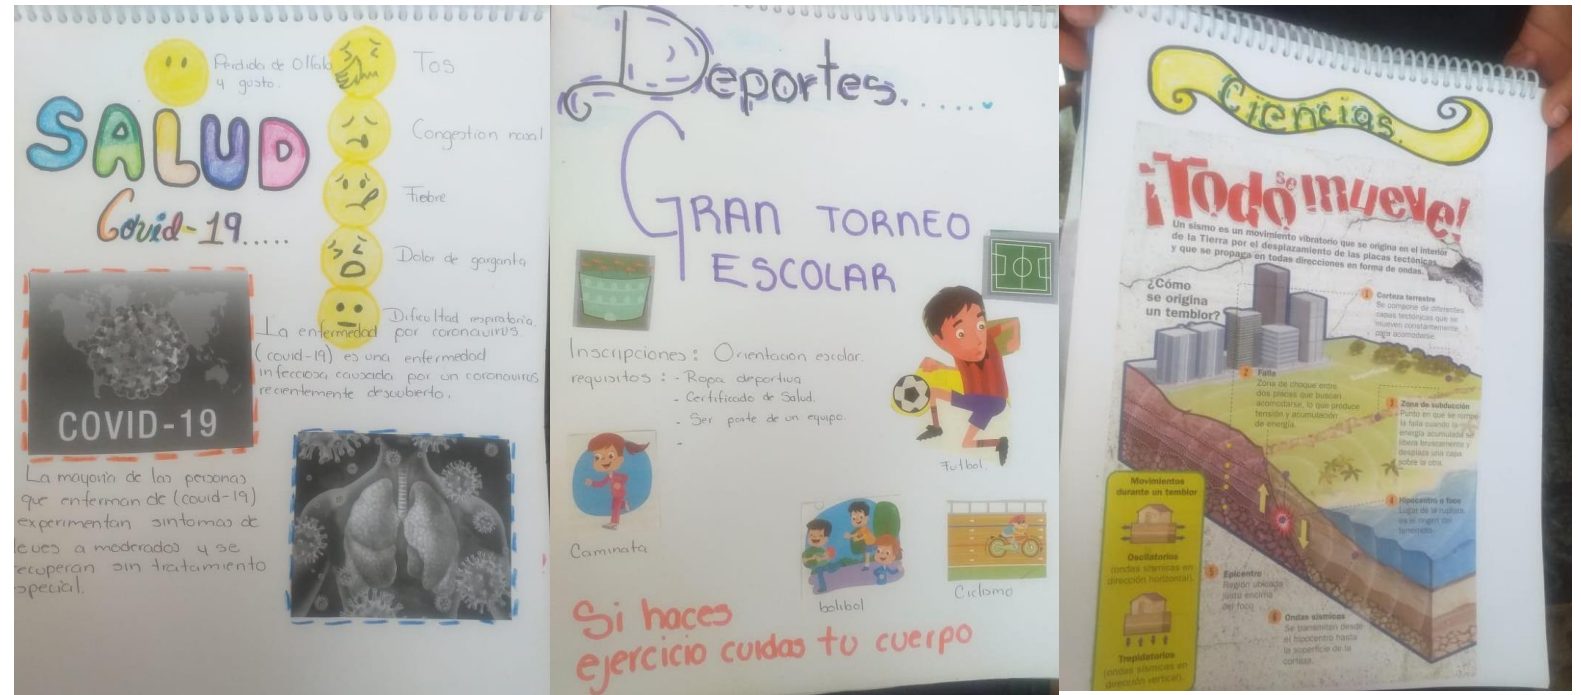 Perdida de Olfato
y gusto.
Tos
SALUD
Congestion nasal
Covid-19.....
Fiebre
Dolor de garganta
Dificultad respiratoria.
COVID-19
La enfermedad por coronavirus
(covid-19) es una enfermedad
infecciosa causada por un coronavirus
recientemente descubierto.
La mayoria de las personas
que enferman de (covid-19)
experimentan sintomas de
leves a moderados y se
recuperan sin tratamiento
special.
Deportes......
GRAN TORNEO
ESCOLAR
Inscripciones: Orientacion escolar.
requisitos: - Ropa deportiva
- Certificado de Salud.
- Ser parte de un equipo.
-
Futbol.
Caminata
bolibol
Ciclismo
Si haces
ejercicio cuidas tu cuerpo
Ciencias.
¡Todo se mueve!
Un sismo es un movimiento vibratorio que se origina en el interior
de la Tierra por el desplazamiento de las placas tectónicas
y que se propaga en todas direcciones en forma de ondas.
¿Cómo
se origina
un temblor?
1 Corteza terrestre
Se compone de diferentes
capas tectónicas que se
mueven constantemente
para acomodarse.
2 Falla
Zona de choque entre
dos placas que buscan
acomodarse, lo que produce
tensión y acumulación
de energía.
3 Zona de subducción
Punto en que se rompe
la falla cuando la
energía acumulada se
libera bruscamente y
desplaza una capa
sobre la otra.
4 Hipocentro o foco
Lugar de la ruptura,
es el origen del
terremoto.
Movimientos
durante un temblor
Oscilatorios
(ondas sísmicas en
dirección horizontal).
Trepidatorios
(ondas sísmicas en
dirección vertical).
5 Epicentro
Región ubicada
justo encima
del foco.
6 Ondas sísmicas
Se transmiten desde
el hipocentro hasta
la superficie de la
corteza.